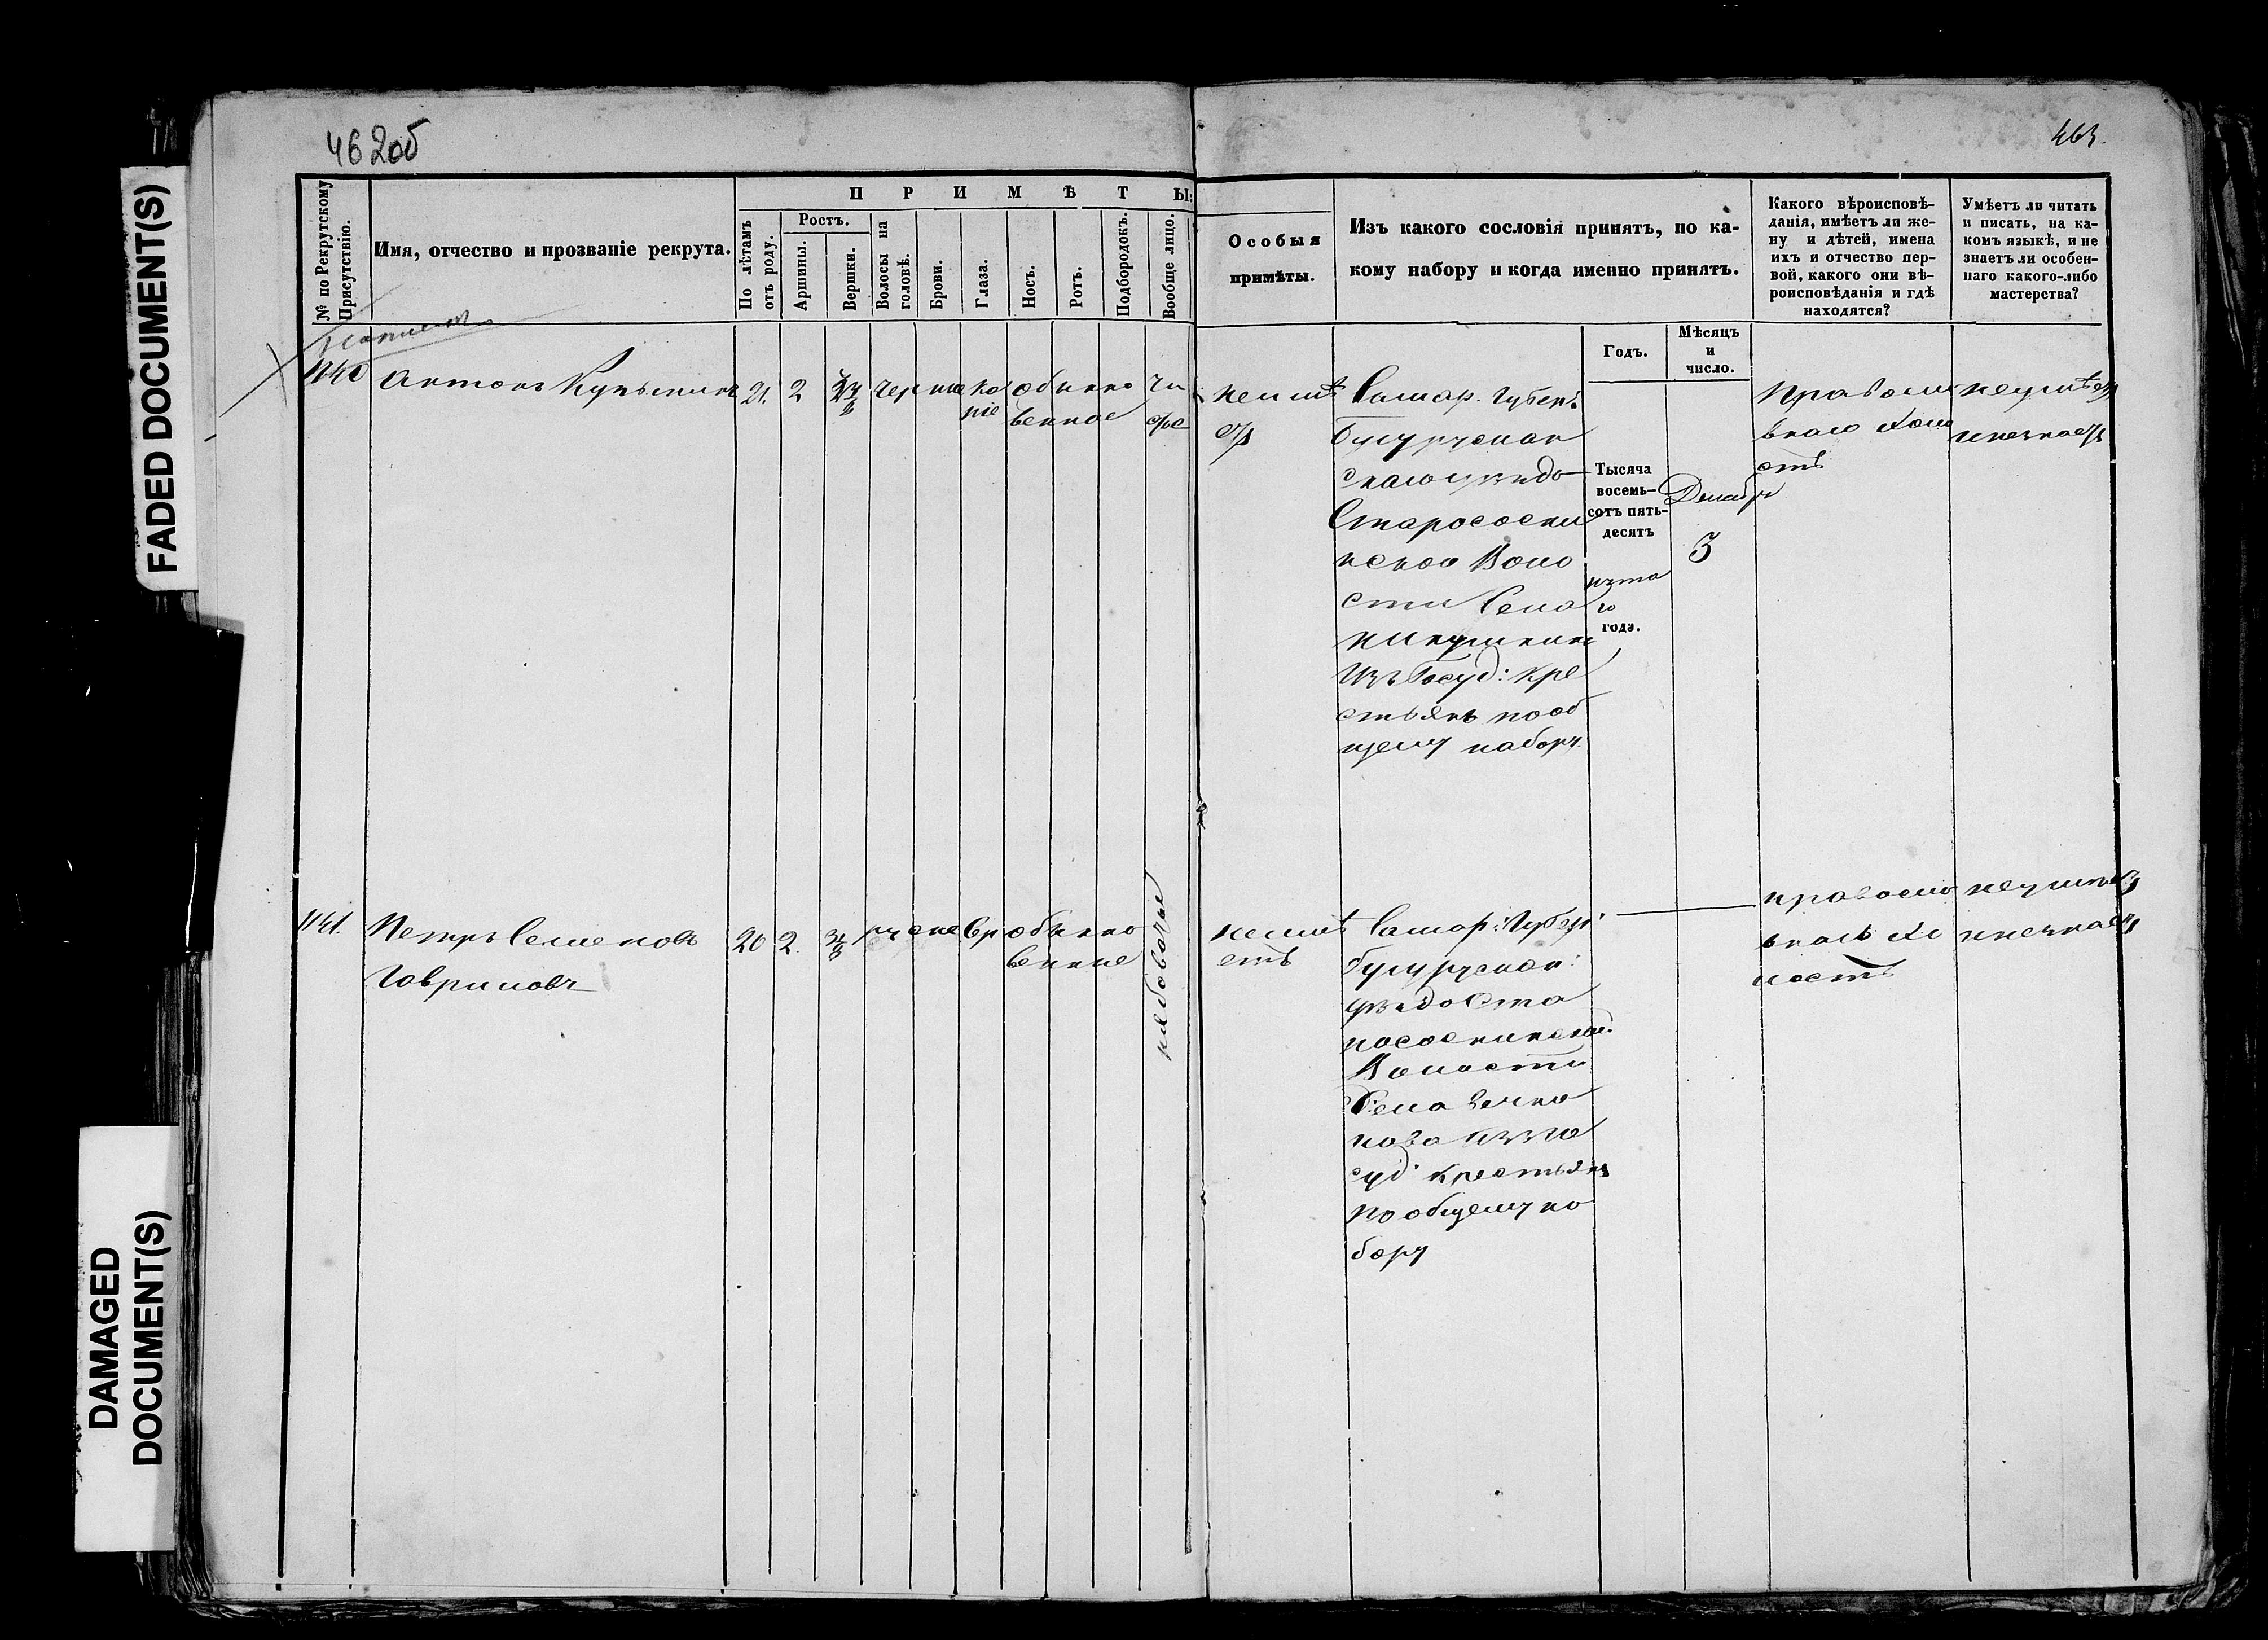 FADED DOCUMENT(S)
DAMAGED
DOCUMENT(S)
462об
463.
№ по Рекрутскому
Присутствію.
Имя, отчество и прозваніе рекрута.
П Р И М Ѣ Т Ы:
По лѣтамъ
отъ роду.
Ростъ.
Аршины.
Вершки.
Волосы на
головѣ.
Брови.
Глаза.
Носъ.
Ротъ.
Подбородокъ.
Вообще лицо.
Особыя
примѣты.
Изъ какого сословія принятъ, по ка-
кому набору и когда именно принятъ.
Годъ.
Мѣсяцъ
и
число.
Какого вѣроисповѣ-
данія, имѣетъ ли же-
ну и дѣтей, имена
ихъ и отчество пер-
вой, какого они вѣ-
роисповѣданія и гдѣ
находятся?
Умѣетъ ли читать
и писать, на ка-
комъ языкѣ, и не
знаетъ ли особен-
наго какого-либо
мастерства?
1140
Антонъ
21.
2
черные
ка
ріе
обыкно
венное
чи
стое
неимѣ
етъ
Самар. Губер:
Бугуруслан
скаго уезда
Старососни
нской Воло
сти Села
Изъ Госуд: кре
стьянъ пооб
щему набору.
Тысяча
восемь-
сотъ пять-
десятъ
пята
го
года.
Декабря
3
Правосла
внаго холо
стъ
неумѣетъ
инезнаетъ
1141.
Петръ Семеновъ
Гавриловъ
20
2.
русые
обыкно
венные
рябоватые
неимѣ
етъ
Самар: Губер:
Бугуруслан:
уезда Ста
рососнинской
Волости
Села
нова изъ Го
суд: крестьянъ
по общему на
бору
правосла
внаго хо
лостъ
неумѣетъ
инезнаетъ